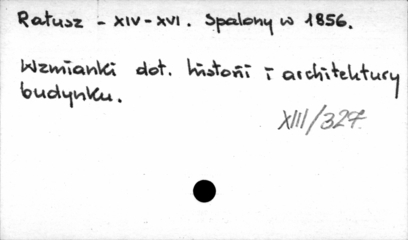 Ratusz - XIV-XVI. Spalony w 1856.
Wzmianki dot. historii i architektury
budynku.
XIII/327.